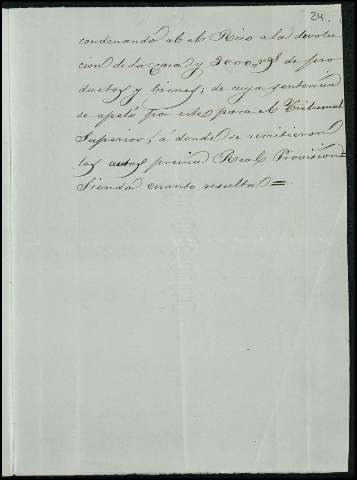 24.
condenando al el Rico a la devolu-
cion de la Casa y 3000,, r.s de pro
ductos y bienes; de cuya sentencia
se apeló por este para el Tribunal
Superior, á donde se remitieron
los autos previa Real Provision=
Siendo cuanto resulta=